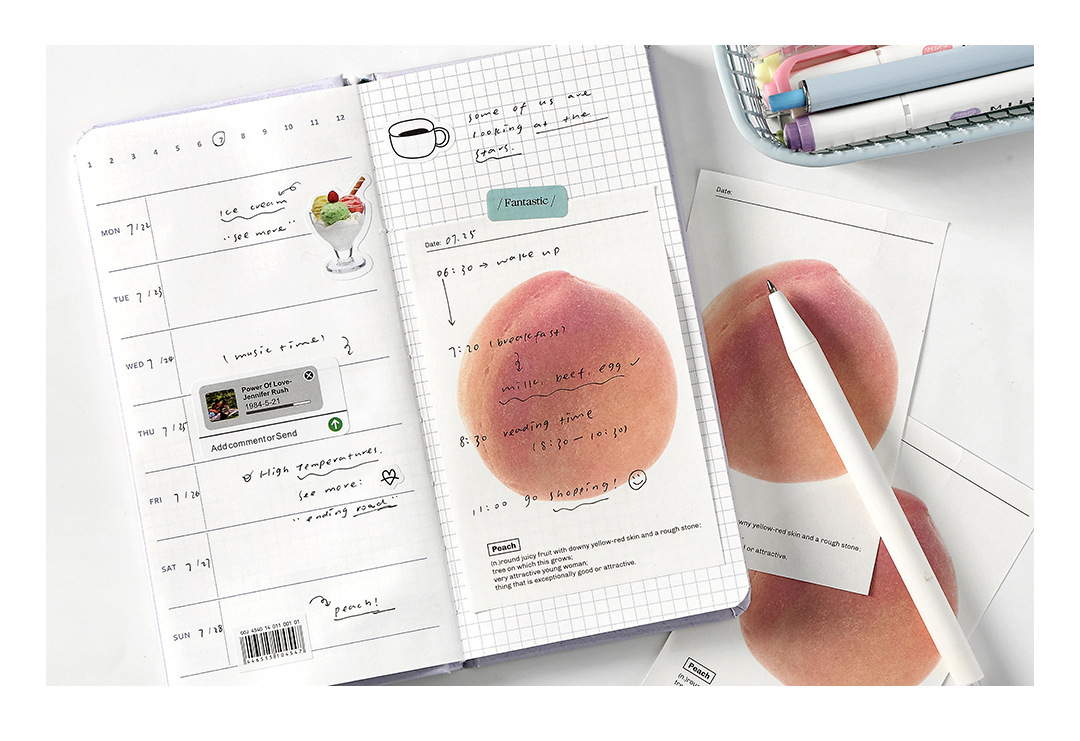 1 2 3 4 5 6 7 8 9 10 11 12
MON 7/22
Ice cream
"see more"
TUE 7/23
WED 7/24
(music time)
Power Of Love-
Jennifer Rush
1984-5-21
Add comment or Send
THU 7/25
High Temperatures.
See more:
"ending road"
FRI 7/26
SAT 7/27
SUN 7/28
peach!
00J 4540 14 011 001 01
some of us are
looking at the
stars.
/ Fantastic /
Date: 07.25
06:30 → wake up
7:20 (breakfast)
milk. beef. egg ✓
8:30 reading time
(8:30 — 10:30)
11:00 go shopping!
Peach
(n.)round juicy fruit with downy yellow-red skin and a rough stone:
tree on which this grows;
very attractive young woman:
thing that is exceptionally good or attractive.
Date:
wny yellow-red skin and a rough stone:
f or attractive.
Peach
(n.)roun
tre